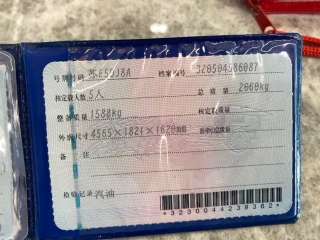 号牌号码 苏E5DJ8A 档案编号 320504586087
核定载人数 5人 总质量 2060kg
整备质量 1588kg 核定载质量
外廓尺寸 4565×1821×1620mm 准牵引总质量
备注
检验记录 汽油
*3230044239362*